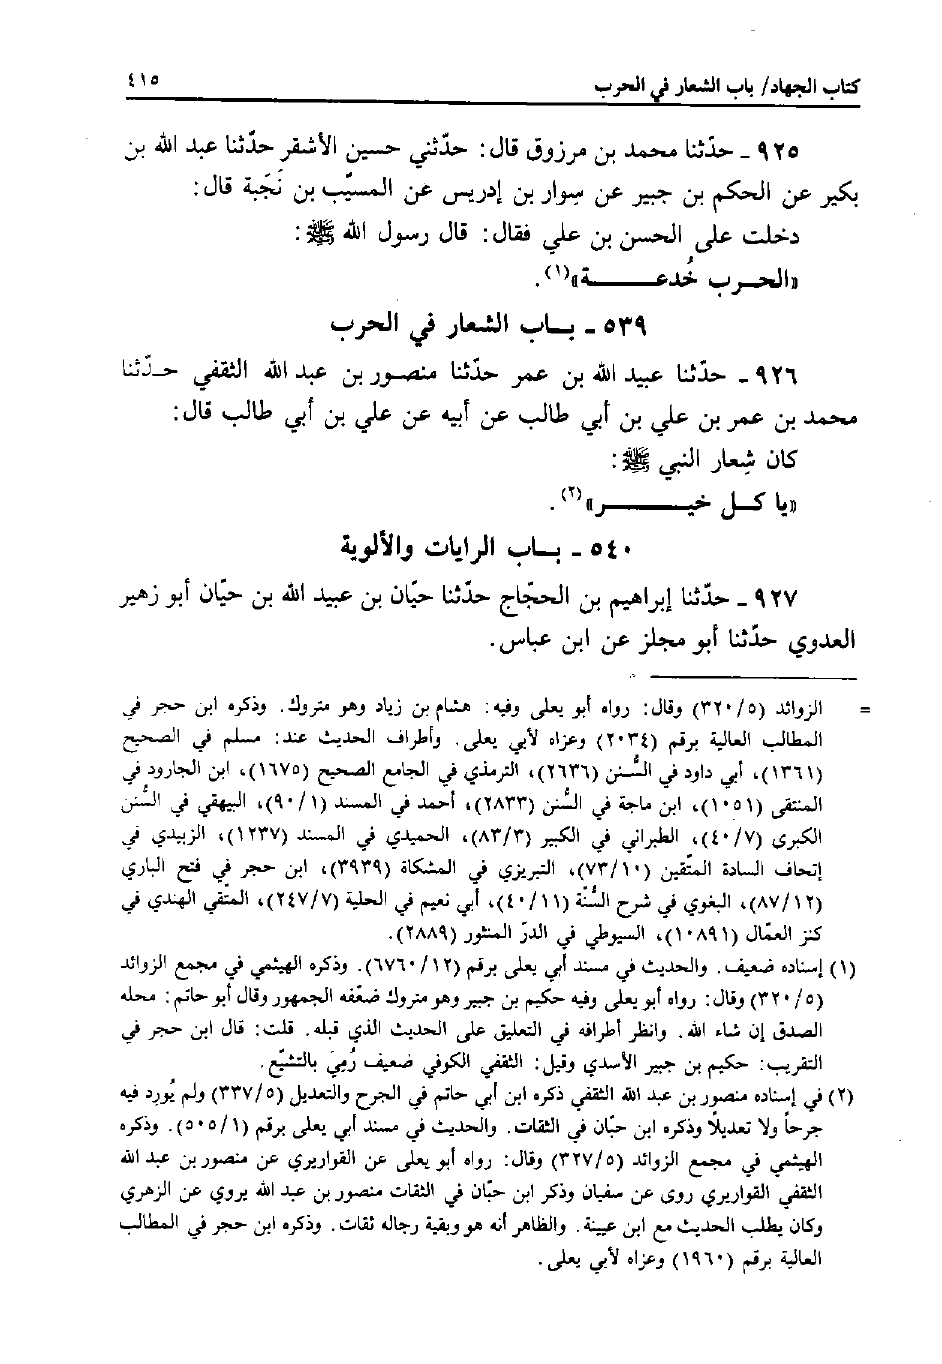 كتاب الجهاد/ باب الشعار في الحرب ٤١٥
٩٢٥ ـ حدّثنا محمد بن مرزوق قال: حدّثني حسين الأشقر حدّثنا عبد الله بن
بكير عن الحكم بن جبير عن سوار بن إدريس عن المسيّب بن نَجَبة قال:
دخلت على الحسن بن علي فقال: قال رسول الله ﷺ:
«الحـرب خُدعـــــة»(١).
٥٣٩ ـ بـاب الشعار في الحرب
٩٢٦ ـ حدّثنا عبيد الله بن عمر حدّثنا منصـور بن عبد الله الثقفي حـدّثنا
محمد بن عمر بن علي بن أبي طالب عن أبيه عن علي بن أبي طالب قال:
كان شِعار النبي ﷺ:
«يا كـل خيـــــر»(٢).
٥٤٠ ـ بـاب الرايات والألوية
٩٢٧ ـ حدّثنا إبراهيم بن الحجّاج حدّثنا حيّان بن عبيد الله بن حيّان أبو زهير
العدوي حدّثنا أبو مجلز عن ابن عباس.
= الزوائد (٣٢٠/٥) وقال: رواه أبو يعلى وفيه: هشام بن زياد وهو متروك. وذكره ابن حجر في
المطالب العالية برقم (٢٠٣٤) وعزاه لأبي يعلى. وأطراف الحديث عند: مسلم في الصحيح
(١٣٦١)، أبي داود في السُّنن (٢٦٣٦)، الترمذي في الجامع الصحيح (١٦٧٥)، ابن الجارود في
المنتقى (١٠٥١)، ابن ماجة في السُّنن (٢٨٣٣)، أحمد في المسند (٩٠/١)، البيهقي في السُّنن
الكبرى (٤٠/٧)، الطبراني في الكبير (٨٣/٣)، الحميدي في المسند (١٢٣٧)، الزبيدي في
إتحاف السادة المتّقين (٧٣/١٠)، التبريزي في المشكاة (٣٩٣٩)، ابن حجر في فتح الباري
(٨٧/١٢)، البغوي في شرح السُّنّة (٤٠/١١)، أبي نعيم في الحلية (٢٤٧/٧)، المتّقي الهندي في
كنز العمّال (١٠٨٩١)، السيوطي في الدرّ المنثور (٢٨٨٩).
(١) إسناده ضعيف. والحديث في مسند أبي يعلى برقم (٦٧٦٠/١٢). وذكره الهيثمي في مجمع الزوائد
(٣٢٠/٥) وقال: رواه أبو يعلى وفيه حكيم بن جبير وهو متروك ضعّفه الجمهور وقال أبو حاتم: محله
الصدق إن شاء الله. وانظر أطرافه في التعليق على الحديث الذي قبله. قلت: قال ابن حجر في
التقريب: حكيم بن جبير الأسدي وقيل: الثقفي الكوفي ضعيف رُمِيَ بالتشيّع.
(٢) في إسناده منصور بن عبد الله الثقفي ذكره ابن أبي حاتم في الجرح والتعديل (٣٣٧/٥) ولم يُورِد فيه
جرحاً ولا تعديلاً وذكره ابن حبّان في الثقات. والحديث في مسند أبي يعلى برقم (٥٠٥/١). وذكره
الهيثمي في مجمع الزوائد (٣٢٧/٥) وقال: رواه أبو يعلى عن القواريري عن منصور بن عبد الله
الثقفي القواريري روى عن سفيان وذكر ابن حبّان في الثقات منصور بن عبد الله يروي عن الزهري
وكان يطلب الحديث مع ابن عيينة. والظاهر أنه هو وبقية رجاله ثقات. وذكره ابن حجر في المطالب
العالية برقم (١٩٦٠) وعزاه لأبي يعلى.